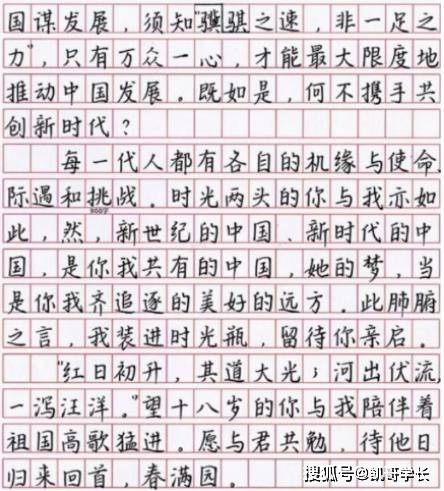 国谋发展，须知“骥骐之速，非一足之
力”，只有万众一心，才能最大限度地
推动中国发展。既如是，何不携手共
创新时代？
每一代人都有各自的机缘与使命、
际遇和挑战。时光两头的你与我亦如
900字
此，然，新世纪的中国、新时代的中
国，是你我共有的中国，她的梦，当
是你我齐追逐的美好的远方。此肺腑
之言，我装进时光瓶，留待你亲启。
“红日初升，其道大光；河出伏流，
一泻汪洋。”望十八岁的你与我陪伴着
祖国高歌猛进。愿与君共勉，待他日
归来回首，春满园。
搜狐号@凯哥学长